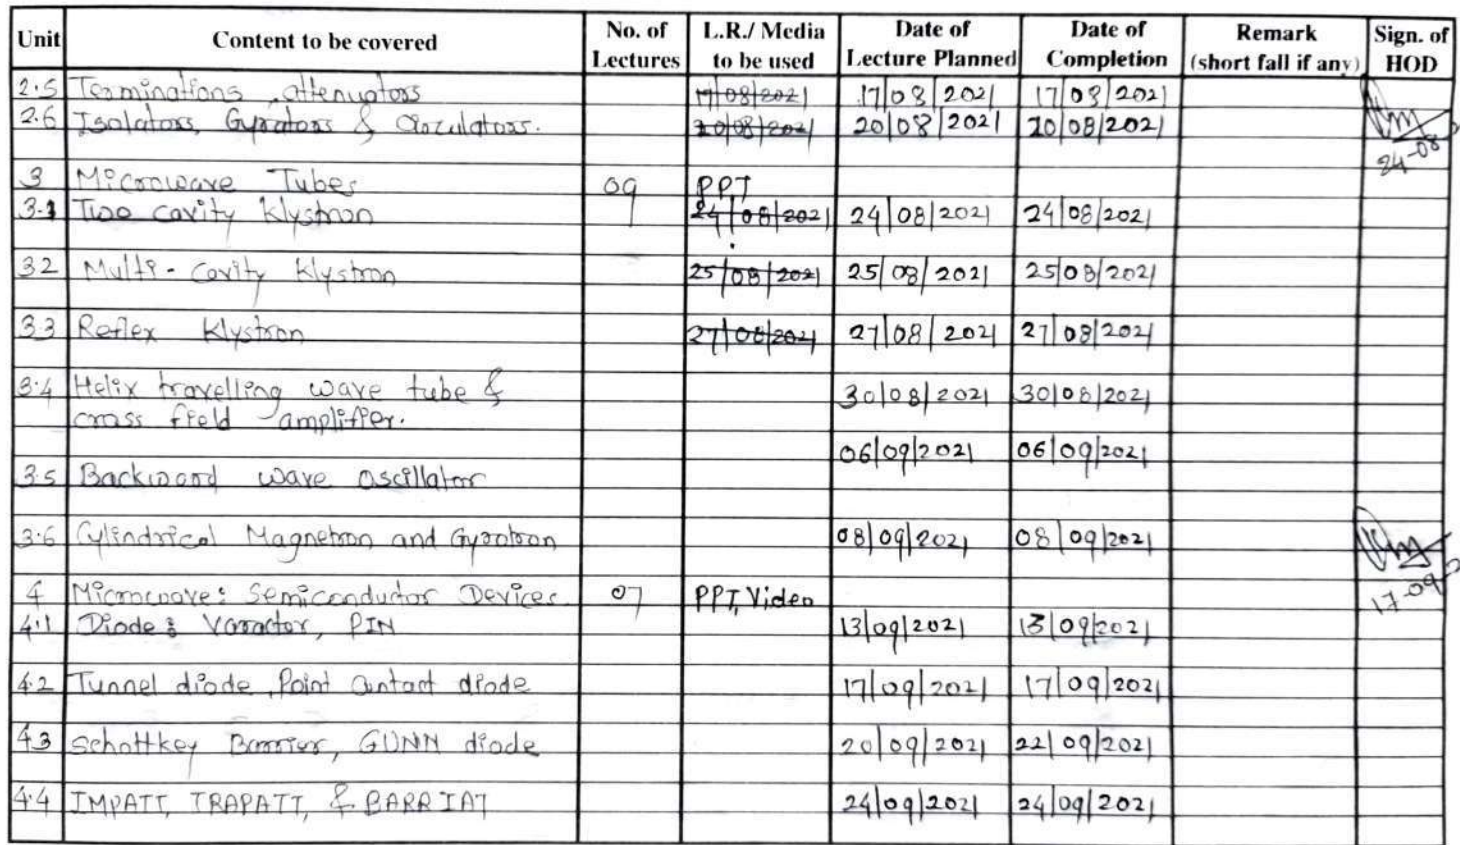 Unit Content to be covered No. of Lectures L.R./ Media to be used Date of Lecture Planned Date of Completion Remark (short fall if any) Sign. of HOD
2.5 Terminations, attenuators 17/08/2021 17/08/2021 17/08/2021
2.6 Isolators, Gyrators & Circulators. 20/08/2021 20/08/2021 20/08/2021
24-08
3 Microwave Tubes 09 PPT
3.1 Two cavity Klystron 24/08/2021 24/08/2021 24/08/2021
3.2 Multi-Cavity Klystron 25/08/2021 25/08/2021 25/08/2021
3.3 Reflex Klystron 27/08/2021 27/08/2021 27/08/2021
3.4 Helix travelling wave tube & 30/08/2021 30/08/2021
cross field amplifier.
06/09/2021 06/09/2021
3.5 Backward wave oscillator
3.6 Cylindrical Magnetron and Gyrotron 08/09/2021 08/09/2021
4 Microwave: Semiconductor Devices 07 PPT, Video
17-09
4.1 Diode: Varactor, PIN 13/09/2021 13/09/2021
4.2 Tunnel diode, Point Contact diode 17/09/2021 17/09/2021
4.3 Schottkey Barrier, GUNN diode 20/09/2021 22/09/2021
4.4 IMPATT, TRAPATT, & BARRIAT 24/09/2021 24/09/2021